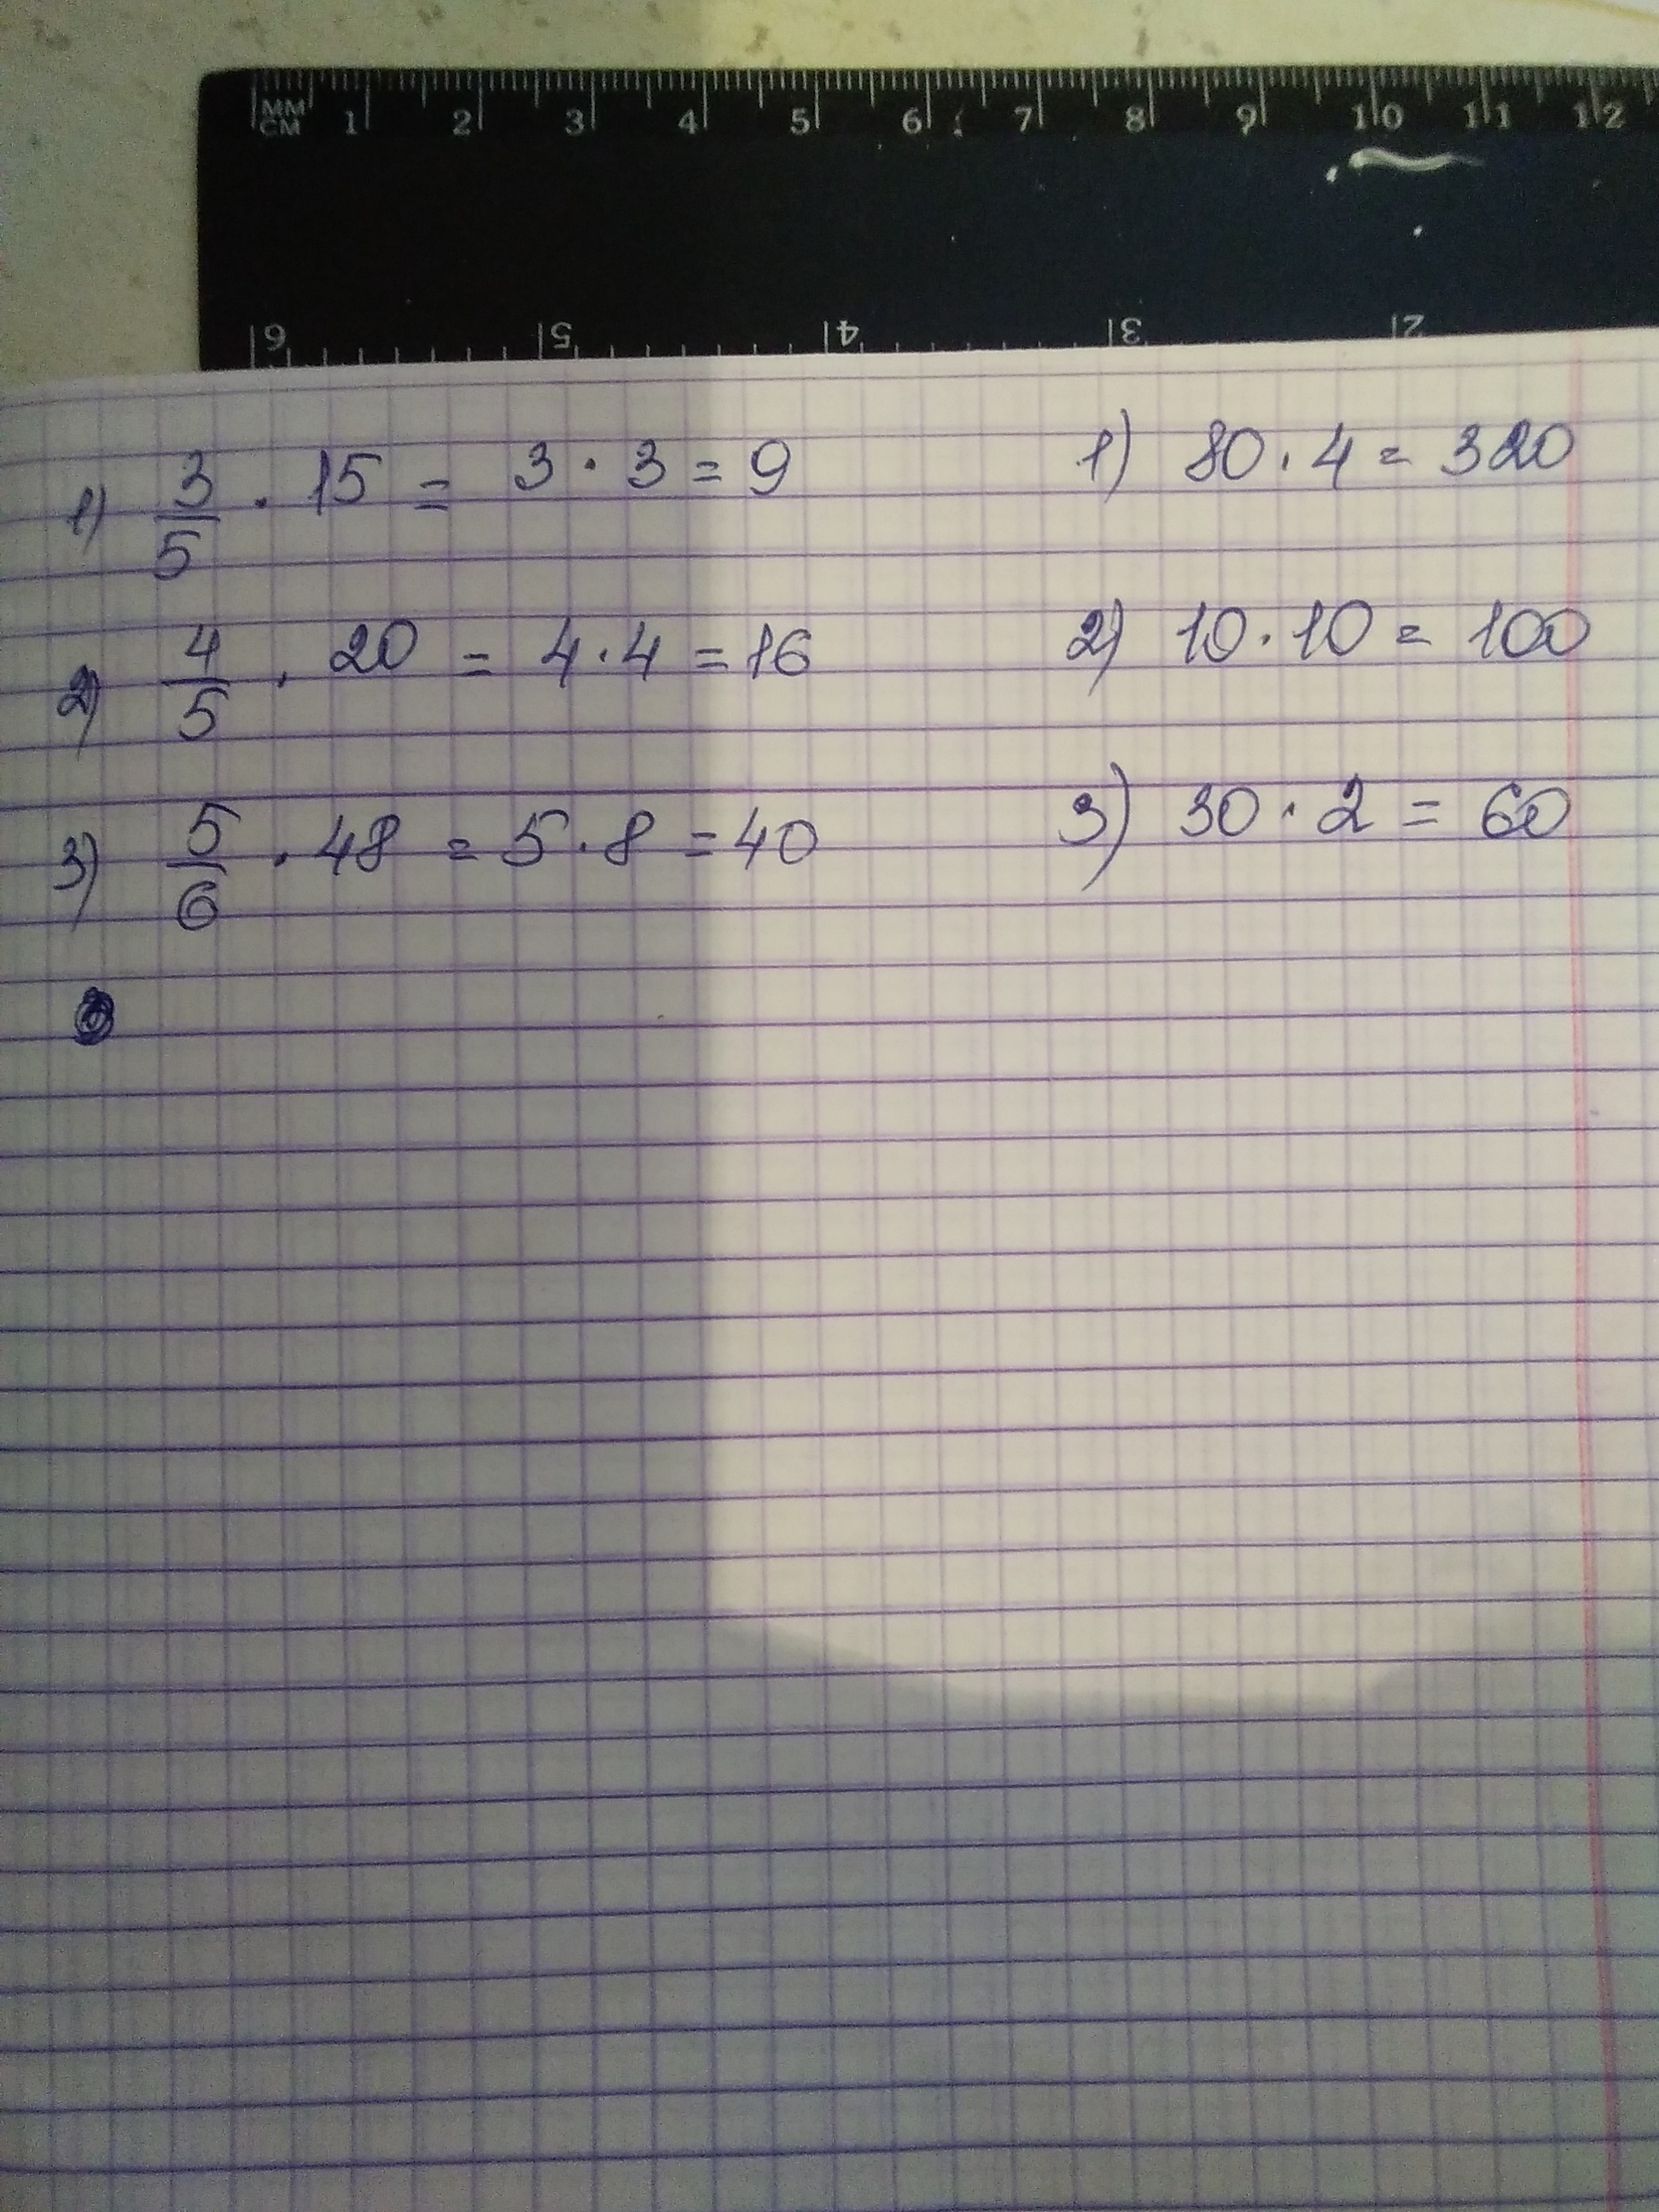 MM
CM 1 2 3 4 5 6 7 8 9 10 11 12
6 5 4 3 2
1) 3/5 · 15 = 3 · 3 = 9
2) 4/5 · 20 = 4 · 4 = 16
3) 5/6 · 48 = 5 · 8 = 40
1) 80 · 4 = 320
2) 10 · 10 = 100
3) 30 · 2 = 60